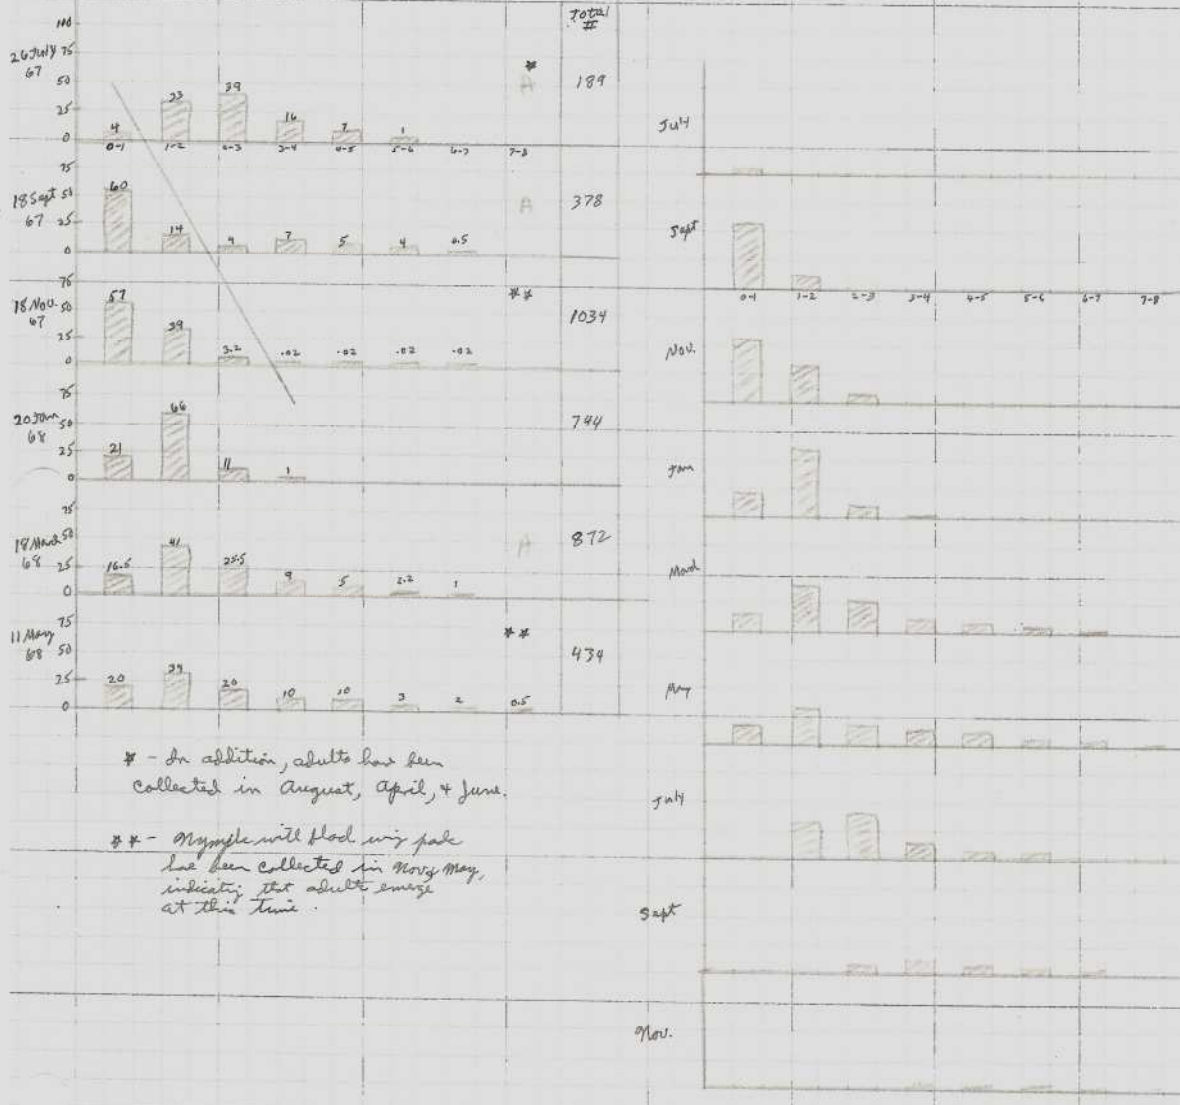 Total
#
100
26 July 67
75
50
25
0
4
33
39
16
7
1
*
A
189
0-1
1-2
2-3
3-4
4-5
5-6
6-7
7-8
18 Sept 67
75
50
25
0
60
14
9
7
5
4
0.5
A
378
18 Nov. 67
75
50
25
0
57
39
3.2
.02
.02
.02
.02
**
1034
20 Jan 68
75
50
25
0
21
66
11
1
744
18 March 68
75
50
25
0
16.5
41
25.5
9
5
2.2
1
A
872
11 May 68
75
50
25
0
20
20
10
10
3
2
0.5
**
434
* - In addition, adults have been
collected in August, April, + June.
** - Nymphs with black wing pads
have been collected in Nov & May,
indicating that adults emerge
at this time.
July
Sept
0-1
1-2
2-3
3-4
4-5
5-6
6-7
7-8
Nov.
Jan
March
May
July
Sept
Nov.